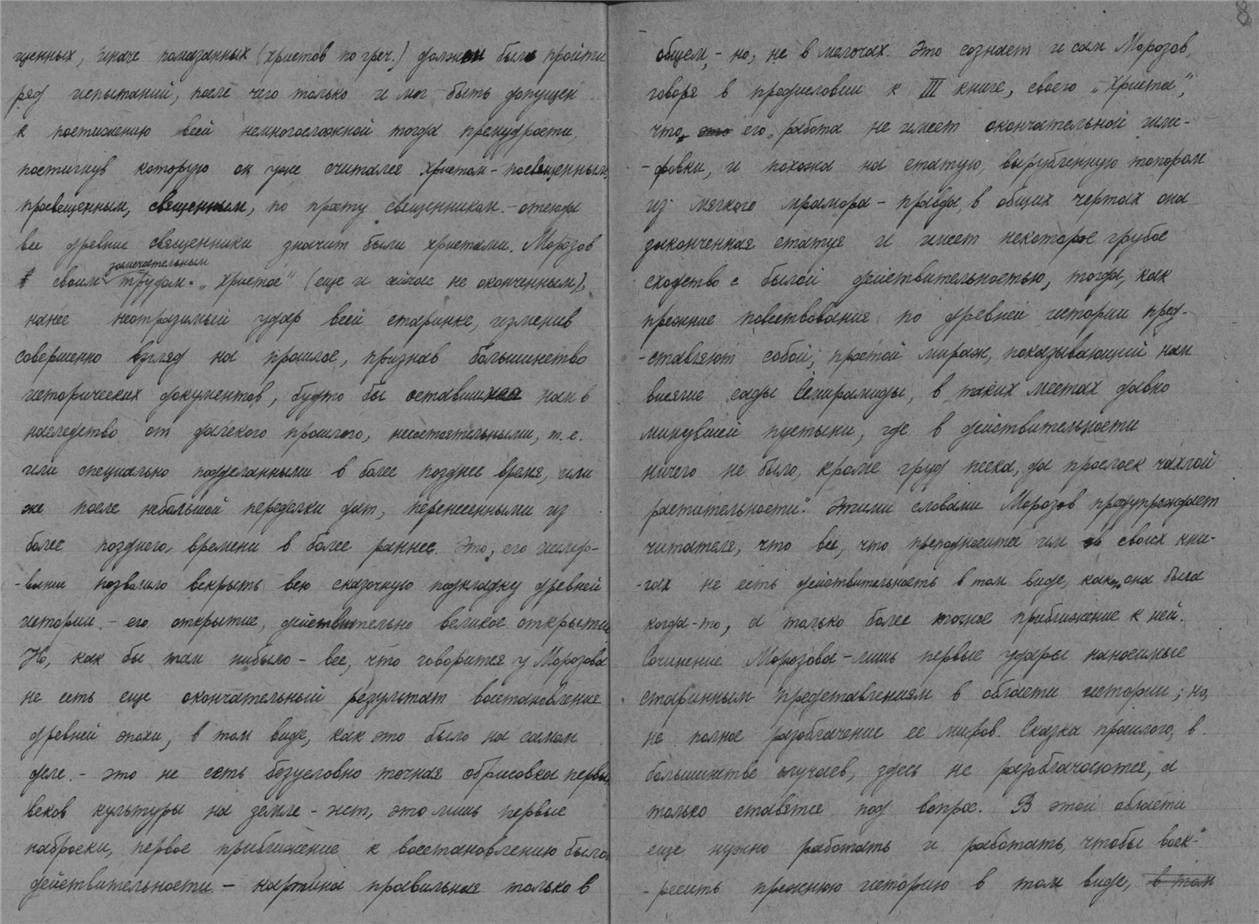 щенных, иначе помазанных (христов по греч.) должен был пройти
ряд испытаний, после чего только и мог быть допущен
к постижению всей немногосложной тогда премудрости,
постигнув которую он уже считался Христом - посвященным,
просвещенным, священным, по просту священником. - отсюда
все древние священники значит были христами. Морозов
замечательным
своим трудом - "Христос" (еще и не оконченным),
нанес неотразимый удар всей старинке, изменив
совершенно взгляд на прошлое, признав большинство
исторических документов, будто бы оставшихся нам в
наследство от далекого прошлого, несостоятельными, т.е.
или специально подделанными в более позднее время, или
же после небольшой переделки дат, перенесенными из
более позднего, времени в более раннее. Это, его
позволило вскрыть всю сказочную подкладку древней
истории. - его открытие, действительно великое открытие
Но, как бы там нибыло - все, что говорится у Морозова
не есть еще окончательный результат восстановления
древней эпохи, в том виде, как это было на самом
деле. - это не есть безусловно точная обрисовка первых
веков культуры на земле - нет, это лишь первые
наброски, первое приближение к восстановлению былой
действительности - картина правильная только в
8
общем, - но, не в мелочах. Это сознает и сам Морозов,
говоря в предисловии к III книге, своего "Христа",
что, это его "работа не имеет окончательной шли-
-фовки, и похожа на статую, вырубленную топором
из мягкого мрамора - правда, в общих чертах она
законченная статуя и имеет некоторое грубое
сходство с былой действительностью, тогда, как
прежние повествования по древней истории пред-
-ставляют собой, простой мираж, показывающий нам
висячие сады Семирамиды, в таких местах давно
минувшей пустыни, где в действительности
ничего не было, кроме груд песка, да прослоек чахлой
растительности". Этими словами Морозов предупреждает
читателя, что все, что преподносится им в своих кни-
-гах не есть действительность в том виде, как она была
когда-то, а только более точное приближение к ней.
Сочинение Морозова - лишь первые удары наносимые
старинным представлениям в области истории; но,
не полное разоблачение ее мифов. Сказка прошлого, в
большинстве случаев, здесь не разоблачаются, а
только ставятся под вопрос. В этой области
еще нужно работать и работать, чтобы воск-
-ресить прежнюю историю в том виде, в том